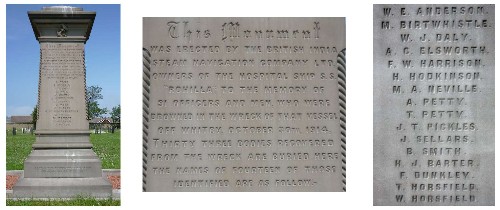 This Monument
WAS ERECTED BY THE BRITISH INDIA
STEAM NAVIGATION COMPANY LTD.
OWNERS OF THE HOSPITAL SHIP S.S.
ROHILLA, TO THE MEMORY OF
51 OFFICERS AND MEN WHO WERE
DROWNED IN THE WRECK OF THEIR VESSEL
OFF WHITBY, OCTOBER 30TH, 1914.
THIRTY THREE BODIES RECOVERED
FROM THE WRECK ARE BURIED HERE
THE NAMES OF FOURTEEN OF THOSE
IDENTIFIED ARE AS FOLLOW:-
W. E. ANDERSON.
M. BIRTWHISTLE.
W. J. DALY.
A. C. ELSWORTH.
F. W. HARRISON.
H. HODKINSON.
M. A. NEVILLE
A. PETTY.
T. PETTY.
J. T. PICKLES.
J. SELLARS.
B. SMITH.
H. J. BARTER.
F. DUNKLEY.
T. HORSFIELD.
W. HORSFIELD.